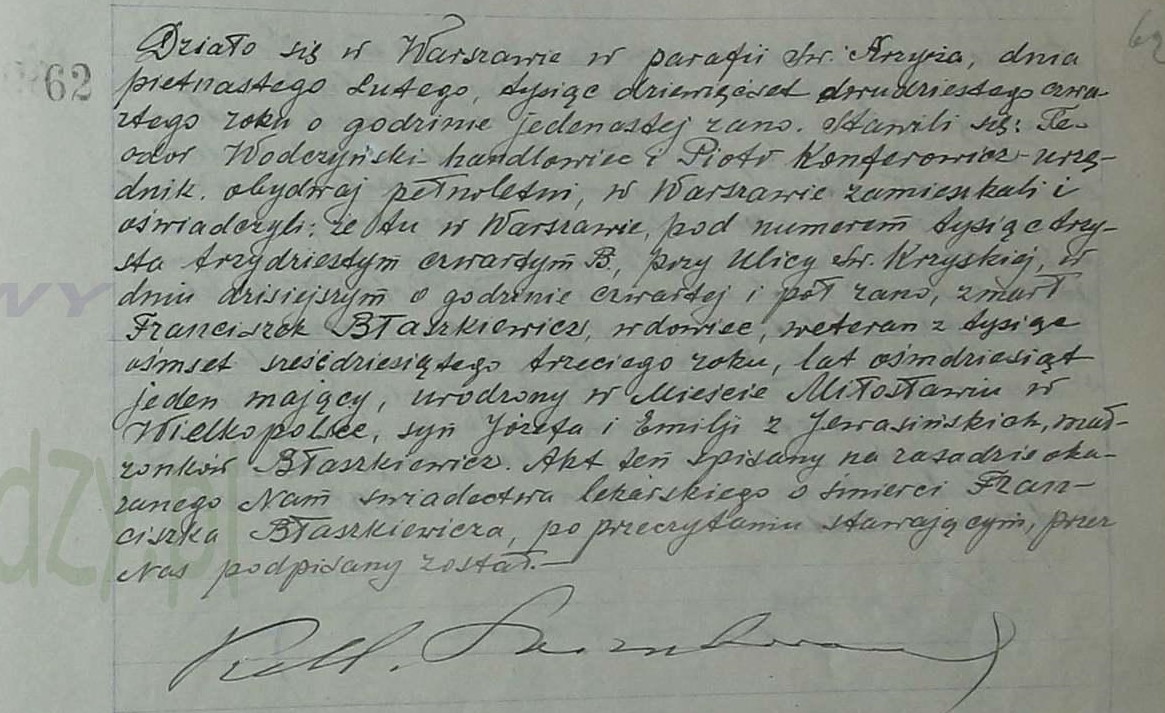 62
Działo się w Warszawie w parafii Św. Krzyża, dnia
piętnastego Lutego, tysiąc dziewięćset dwudziestego czwa-
rtego roku o godzinie jedenastej rano. Stawili się: Te-
odor Wodczyński handlowiec i Piotr Konferowicz - urzę-
dnik. obydwaj pełnoletni, w Warszawie zamieszkali i
oświadczyli: że tu w Warszawie, pod numerem tysiąc trzy-
sta trzydziestym czwartym B., przy Ulicy Św. Krzyskiej, w
dniu dzisiejszym o godzinie czwartej i pół rano, zmarł
Franciszek Błaszkiewicz, wdowiec, weteran z tysiąc
ośmset sześćdziesiątego trzeciego roku, lat ośmdziesiąt
jeden mający, urodzony w Mieście Miłosławiu w
Wielkopolsce, syn Józefa i Emilji z Jewasińskich, mał-
żonków Błaszkiewicz. Akt ten spisany na zasadzie oka-
zanego Nam świadectwa lekarskiego o śmierci Fran-
ciszka Błaszkiewicza, po przeczytaniu stawającym, przez
Nas podpisany został. —